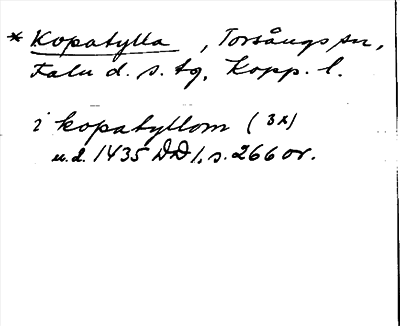 * Kopatylla, Torsångs sn,
Falu d. s. tg, Kopp. l.
i kopatyllom (3x)
u.d. 1435 DD 1, s. 266 or.